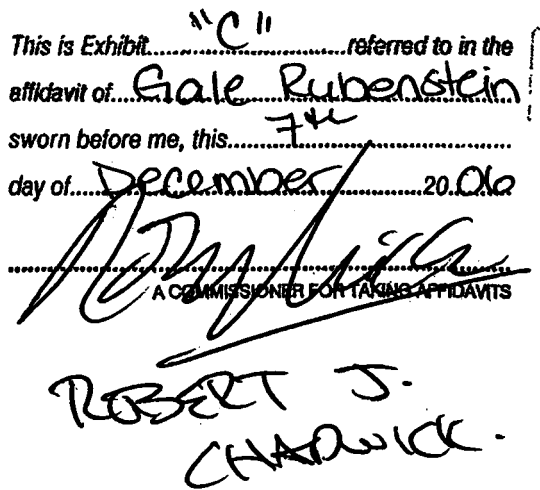 This is Exhibit "C" referred to in the
affidavit of Gale Rubenstein
sworn before me, this 7th
day of December 2006
A COMMISSIONER FOR TAKING AFFIDAVITS
ROBERT J.
CHADWICK.